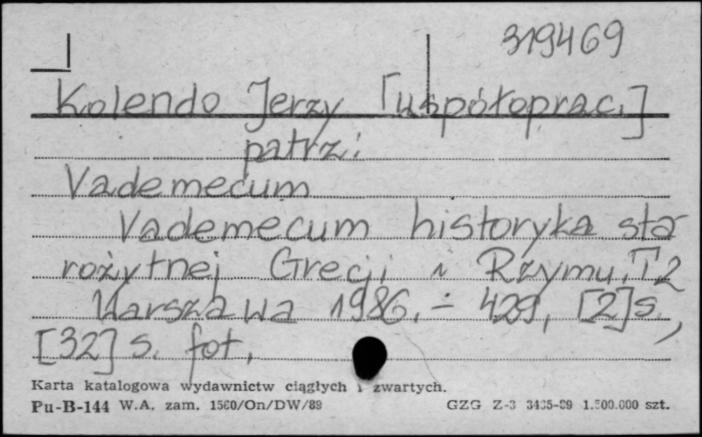 319469
Kolendo Jerzy [współoprac.]
patrz:
Vademecum
Vademecum historyka sta
rożytnej Grecji i Rzymu. T. 2
Warszawa 1986. - 429, [2] s.,
[32] s. fot.
Karta katalogowa wydawnictw ciągłych i zwartych.
Pu-B-144 W.A. zam. 1560/On/DW/89 GZG Z-3 3435-89 1.500.000 szt.